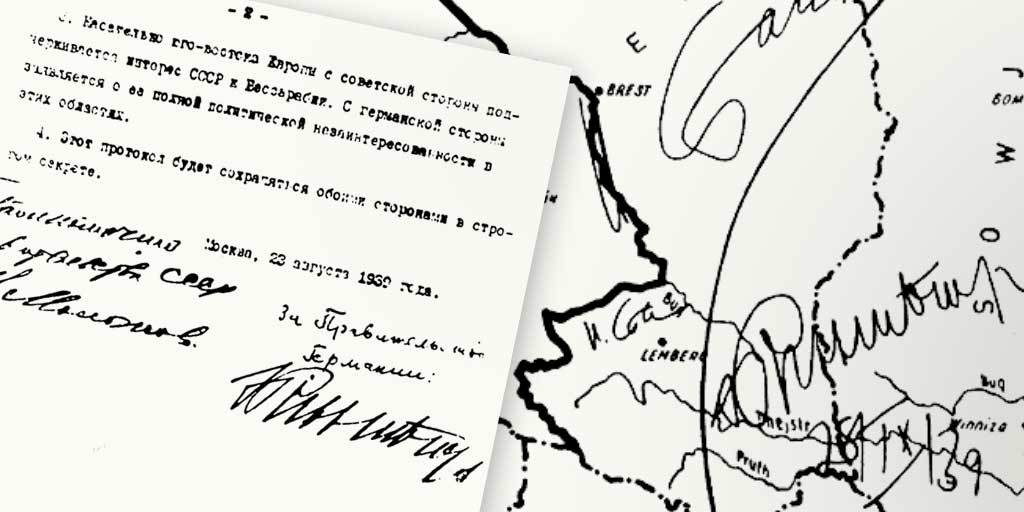 - 2 -
3. Касательно юго-востока Европы с советской стороны под-
черкивается интерес СССР к Бессарабии. С германской стороны
заявляется о ее полной политической незаинтересованности в
этих областях.
4. Этот протокол будет сохраняться обоими сторонами в стро-
гом секрете.
Москва, 23 августа 1939 года.
правительства СССР
В. Молотов
За Правительство
Германии:
Ribbentrop
E
BREST
J
W
O
S
И. Сталин
LEMBERG
Ribbentrop
Bug
Winniza
Dnejstr
Pruth
28/IX/39